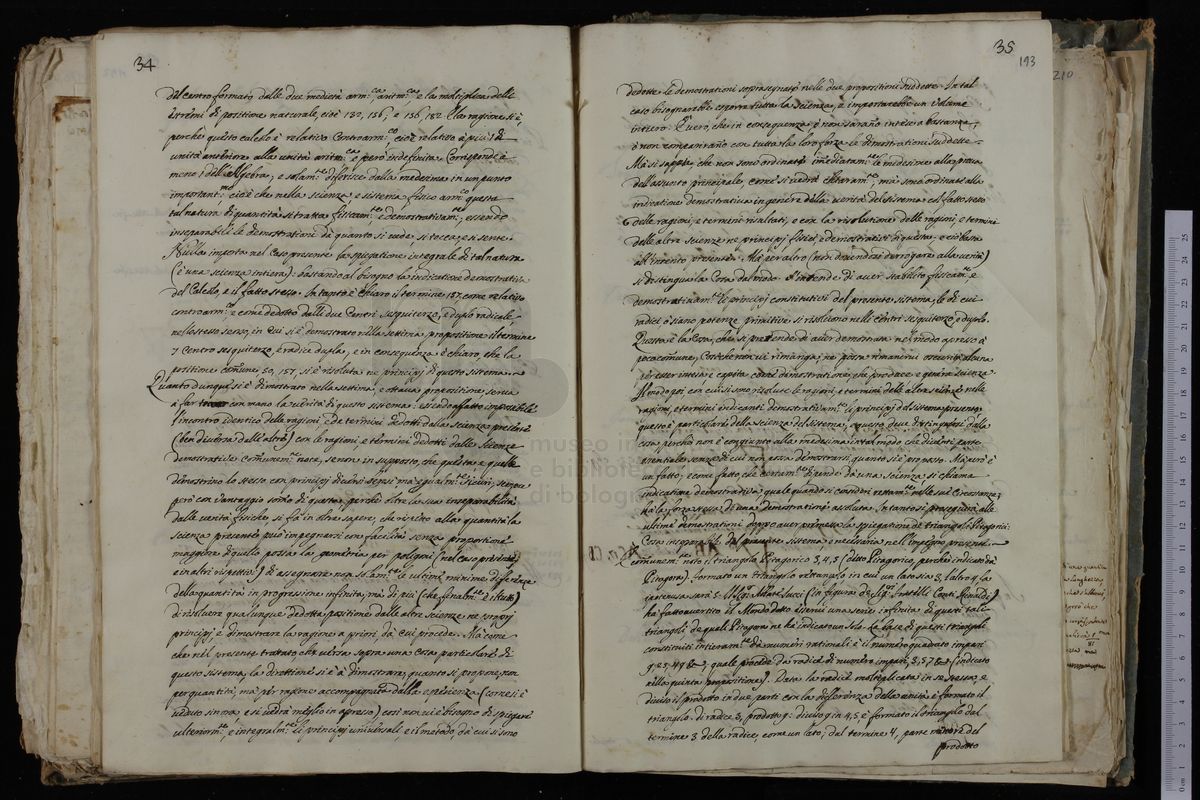 34
del centro formato dalle due medietà arm:ca, aritm:ca, e la moltiplica delli
estremi di positione naturale, cioè 132, 156, e 156, 182. La ragione si è,
perché questo calcolo è relativo Controarm:co, cioè relativo à più 1 di
unità anteriore alla unità aritm:ca e però indefinita. Corrisponde à
meno 1 dell'Algebra, e solam:te diferisce dalla medesima in un punto
important:mo cioè che nella scienza, e sistema fisico arm:co questa
tal natura di quantità si tratta fisicam:te e demostrativam:te, essendo
inseparabili le demostrationi da quanto si vede, si tocca, e si sente.
Nulla importa nel caso presente la spiegatione integrale di tal natura
(è una scienza intiera): bastando al bisogno la indicatione demostrativa
del Calcolo, e il fatto stesso. Intanto è chiaro il termine 157, come relativo
controarm:co e come dedotto dalli due Centri sesquiterzo, e duplo radicale,
nello stesso senso, in cui si è demostrato nella settima propositione il termine
7 centro sesquiterzo, e radice dupla, e in consequenza è chiaro che la
positione comune 50, 157, si è risoluta ne principj di questo sistema.
Quanto dunque si è dimostrato nella settima, e ottava propositione, serve
à far con mano la verità di questo sistema: essendo affatto impossibile
l'incontro identico delle ragioni, e de termini dedotti dalla scienza presente
(ben diversa dall'altre) con le ragioni, e termini dedotti dalle scienze
demostrative comunem:te note, se non in supposto, che queste e quelle
demostrino lo stesso con principj diversi sensi ma egualm:te sicuri, sempre
però con vantaggio sommo di questa, perché oltre la sua inseparabilità
dalle verità fisiche, si fà in oltre sapere, che rispetto alla quantità la
scienza presente può impegnarsi con facilità senza proportione
maggiore di quello possa la geometria per poligoni (nel caso presente,
e in altri rispettivi) di assegnare non solam:te le ultime minime diferenze
della quantità in progressione infinita, mà di più (che finalm:te è il tutto)
di risolvere qualunque dedotta positione dalle altre scienze ne proprj
principj, e dimostrare la ragione a priori da cui procede. Mà come
che nel presente trattato che versa sopra una cosa particolare di
questo sistema, la direttione si è à dimostrare quanto si propone non
per quantità, ma per ragione accompagnata dalla esperienza (come si è
veduto sin ora, e si vedrà meglio in apresso) così non vi è bisogno di spiegare
ulteriorm:te, e integralm:te li principj universali e il metodo, da cui si sono
35
193
210
dedotte le demostrationi soprasegnate nelle due propositioni suddette. In tal
caso bisognarebbe esporre tutta la scienza, e importarebbe un volume
intiero. È vero, che in consequenza ò non saranno intese à bastanza,
ò non compariranno con tutta la loro forza le demostrationi suddette.
Mà si sappia che non sono ordinate immediatam:te le medesime alla prova
dell'assunto principale, come si vedrà chiaram:te, mà sono ordinate alla
indicatione demostrativa in genere della verità del sistema col fatto stesso
delle ragioni, e termini risultati, e con la risolutione delle ragioni, e termini
delle altre scienze ne principj fisici, e demostrativi di questa: e ciò basta
all'intento presente. Mà per altro (non dovendosi derrogare alla verità)
si distingua la Cosa dal modo. S'intende di aver stabilito fisicam:te, e
demostrativam:te li principj constitutivi del presente sistema, le di cui
radici ò siano potenze primitive si risolvono nelli centri sesquiterzo, e duplo.
Questa è la Cosa, che si pretende di aver demostrata nel modo apreso à
poco comune, cosiche non vi rimanga, ne possa rimanervi oscurità alcuna
per esser intesa e capita come demostrationi, che produce, e genera scienza.
Il modo poi con cui si sono risoluce le ragioni, e termini delle altre scienze nelle
ragioni, e termini indicanti demostrativam:te li principj del sistema presente,
questo è particolare della scienza del sistema, e questo deve distinguersi dalla
cosa, perché non è congiunto alla medesima in tal modo che diventi parte
essentiale senza di cui non possa demostrarsi quanto si è proposto. Mà però è
un fatto; e come fatto che certam:te dipende da una scienza si chiama
indicatione demostrativa, quale quando si consideri rettam:te nelle sue circostanze
hà la forza stessa di una demostratione assoluta. Intanto si proseguirà alle
ultime demostrationi doppo aver premessa la spiegatione de triangoli Pitagorici:
Cosa inseparabile dal presente sistema, e necessaria nell'impegno presente.
Comunem:te noto il triangolo Pitagorico 3, 4, 5 (detto Pitagorico, perché indicato da
Pitagora). Formato un triangolo rettangolo in cui un lato sia 3, l'altro 4, la
ipotenusa sarà 5. Il Sig:r Abbate Succi (in figura de Sig:ri Fratelli Conti Rinaldi)
ha fatto avertito il Mondo dotto esservi una serie infinita di questi tali
triangoli de quali Pitagora ne ha indicato un solo. La base di questi triangoli
constituiti intieram:te da numeri rationali è il numero quadrato impari
9, 25, 49 &c, quale procede da radice di numero impari, 3, 5, 7 &c (indicato
nella quinta propositione). Data la radice moltiplicata in se stessa, e
diviso il prodotto in due parti con la differenza della unità è formato il
triangolo. Si radice 3, prodotto 9: diviso 9 in 4, 5 è formato il triangolo dal
termine 3 della radice, come un lato; dal termine 4, parte minore del
prodotto